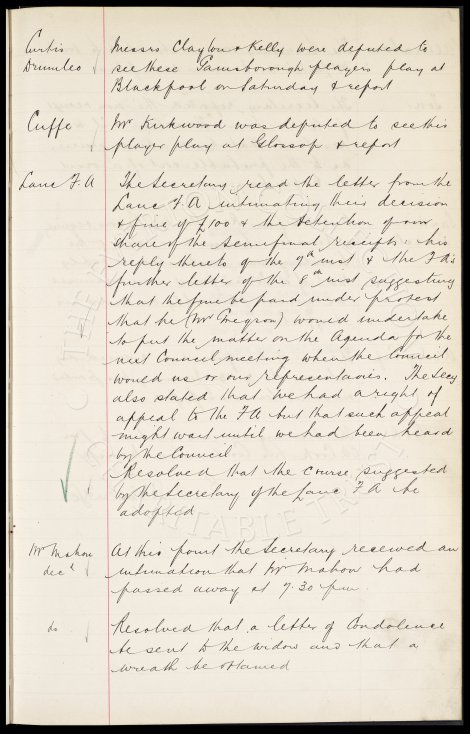 Curtis Messrs Clayton & Kelly were deputed to
Drumleo see these Gainsborough players play at
Blackpool on Saturday & report
Cuffe Mr Kirkwood was deputed to see this
player play at Glossop & report
Lanc F.A The Secretary read the letter from the
Lanc F.A intimating their decision
& fine of £100 & the detention of our
share of the semifinal receipts, his
reply thereto of the 7th inst & the F.A's
further letter of the 8th inst suggesting
that the fine be paid under protest
that he (Mr Gregson) would undertake
to put the matter on the Agenda for the
next Council meeting when the Council
would us or our representatives. The Secy
also stated that we had a right of
appeal to the F.A but that such appeal
might wait until we had been heard
by the Council
Resolved that the course suggested
by the Secretary of the Lanc F.A be
adopted
Mr Mahon At this point the Secretary received an
decd intimation that Mr Mahon had
passed away at 7.30 pm
do Resolved that a letter of Condolence
be sent to the widow and that a
wreath be obtained